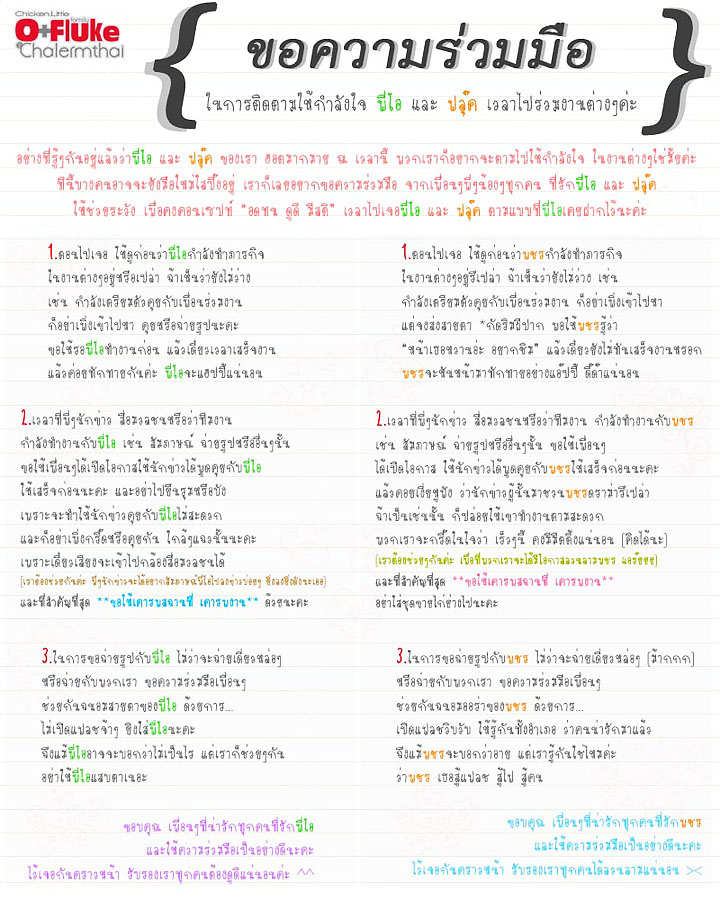 Chicken Little
family
O+Fluke
@Chalermthai
ขอความร่วมมือ
ในการติดตามให้กำลังใจ พี่โอ และ ฟลุ๊ค เวลาไปร่วมงานต่างๆค่ะ
อย่างที่รู้ๆกันอยู่แล้วว่าพี่โอ และ ฟลุ๊ค ของเรา ฮอตมากมาย ณ เวลานี้ พวกเราก็อยากจะตามไปให้กำลังใจ ในงานต่างๆใช่มั้ยค่ะ
ทีนี้บางคนอาจจะยังมือใหม่ใสปิ๊งอยู่ เราก็เลยอยากขอความร่วมมือ จากเพื่อนๆพี่ๆน้องๆทุกคน ที่รักพี่โอ และ ฟลุ๊ค
ให้ช่วยระวัง เพื่อคงคอนเซปท์ "อดทน ดูดี มีสติ" เวลาไปเจอพี่โอ และ ฟลุ๊ค ตามแบบที่พี่โอเคยฝากไว้นะค่ะ
1.ตอนไปเจอ ให้ดูก่อนว่าพี่โอกำลังทำภารกิจ
ในงานต่างๆอยู่หรือเปล่า ถ้าเห็นว่ายังไม่ว่าง
เช่น กำลังเตรียมตัวคุยกับเพื่อนร่วมงาน
ก็อย่าเพิ่งเข้าไปหา คุยหรือถ่ายรูปนะคะ
ขอให้รอพี่โอทำงานก่อน แล้วเดี๋ยวเวลาเสร็จงาน
แล้วค่อยทักทายกันค่ะ พี่โอจะแฮปปี้แน่นอน
2.เวลาที่พี่ๆนักข่าว สื่อมวลชนหรือว่าทีมงาน
กำลังทำงานกับพี่โอ เช่น สัมภาษณ์ ถ่ายรูปหรืออื่นๆนั้น
ขอให้เพื่อนๆได้เปิดโอกาสให้นักข่าวได้พูดคุยกับพี่โอ
ให้เสร็จก่อนนะคะ และอย่าไปยืนรุมหรือบัง
เพราะจะทำให้นักข่าวคุยกับพี่โอไม่สะดวก
และก็อย่าเพิ่งกรี๊ดหรือคุยกัน ใกล้ๆแถวนั้นนะคะ
เพราะเดี๋ยวเสียงจะเข้าไปกล้องสื่อมวลชนได้
(เราต้องช่วยกันค่ะ พี่ๆนักข่าวจะได้อยากสัมภาษณ์พี่โอไปลงข่าวบ่อยๆ ยิ่งลงยิ่งดังนะเออ)
และที่สำคัญที่สุด **ขอให้เคารพสถานที่ เคารพงาน** ด้วยนะคะ
3.ในการขอถ่ายรูปกับพี่โอ ไม่ว่าจะถ่ายเดี่ยวหล่อๆ
หรือถ่ายกับพวกเรา ขอความร่วมมือเพื่อนๆ
ช่วยกันถนอมสายตาของพี่โอ ด้วยการ...
ไม่เปิดแฟลชจ้าๆ ยิงใส่พี่โอนะคะ
ถึงแม้พี่โออาจจะบอกว่าไม่เป็นไร แต่เราก็ช่วยๆกัน
อย่าให้พี่โอแสบตาเนอะ
ขอบคุณ เพื่อนๆที่น่ารักทุกคนที่รักพี่โอ
และให้ความร่วมมือเป็นอย่างดีนะคะ
ไว้เจอกันคราวหน้า รับรองเราทุกคนต้องดูดีแน่นอนค่ะ ^^
1.ตอนไปเจอ ให้ดูก่อนว่าพชรกำลังทำภารกิจ
ในงานต่างๆอยู่รึเปล่า ถ้าเห็นว่ายังไม่ว่าง เช่น
กำลังเตรียมตัวคุยกับเพื่อนร่วมงาน ก็อย่าเพิ่งเข้าไปหา
แต่จงส่งสายตา *กัดริมฝีปาก พอให้พชรรู้ว่า
"หน้าเธอหวานอ่ะ อยากชิม" แล้วเดี๋ยวยังไม่ทันเสร็จงานหรอก
พชรจะหันหน้ามาทักทายอย่างแฮ๊ปปี้ ดี๊ด๊าแน่นอน
2.เวลาที่พี่ๆนักข่าว สื่อมวลชนหรือว่าทีมงาน กำลังทำงานกับพชร
เช่น สัมภาษณ์ ถ่ายรูปหรืออื่นๆนั้น ขอให้เพื่อนๆ
ได้เปิดโอกาส ให้นักข่าวได้พูดคุยกับพชรให้เสร็จก่อนนะคะ
แล้วคอยเงี่ยหูฟัง ว่านักข่าวผู้นั้นมาชวนพชรดราม่ารึเปล่า
ถ้าเป็นเช่นนั้น ก็ปล่อยให้เขาทำงานตามสะดวก
พวกเราจะกรี๊ดในใจว่า เร็วๆนี้ คงมีมีตติ้งแน่นอน (คิดได้นะ)
(เราต้องช่วยๆกันค่ะ เพื่อที่พวกเราจะได้มีโอกาสลวนลามพชร บ่อยๆๆๆ)
และที่สำคัญที่สุด **ขอให้เคารพสถานที่ เคารพงาน**
อย่าใส่ชุดขายไก่ย่างไปนะคะ
3.ในการขอถ่ายรูปกับพชร ไม่ว่าจะถ่ายเดี่ยวหล่อๆ (ม๊ากกก)
หรือถ่ายกับพวกเรา ขอความร่วมมือเพื่อนๆ
ช่วยกันถนอมออร่าของพชร ด้วยการ...
เปิดแฟลชวิบวับ ให้รู้กันทั้งอำเภอ ว่าคนน่ารักมาแล้ว
ถึงแม้พชรจะบอกว่าอาย แต่เรารู้กันใช่ไหมค่ะ
ว่าพชร เธอสู้แฟลช สู้ไฟ สู้คน
ขอบคุณ เพื่อนๆที่น่ารักทุกคนที่รักพชร
และให้ความร่วมมือเป็นอย่างดีนะคะ
ไว้เจอกันคราวหน้า รับรองเราทุกคนได้ลวนลามแน่นอน ><